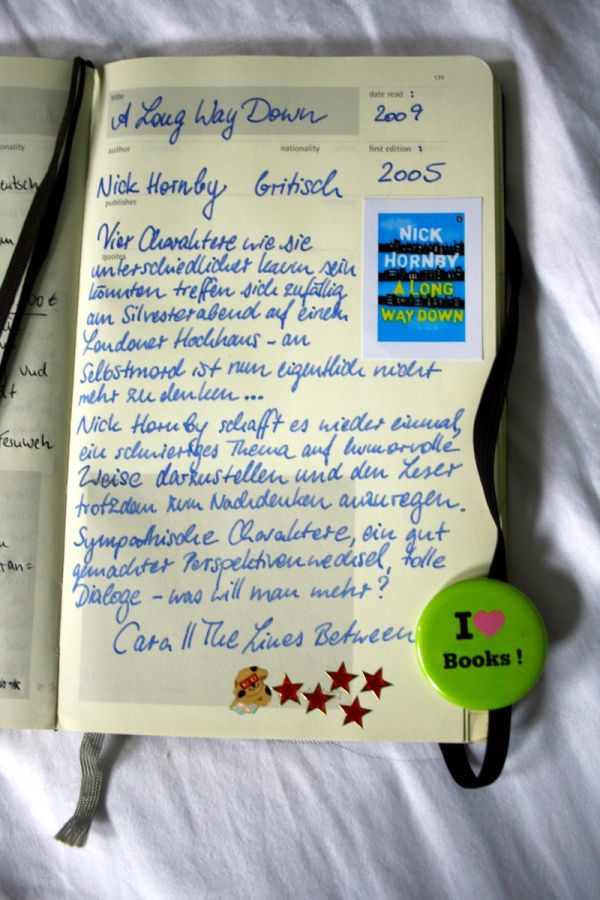 139
title
A Long Way Down
date read :
2009
author
nationality
first edition :
Nick Hornby
britisch
2005
publisher
Vier Charaktere wie sie
quotes
unterschiedlicher kaum sein
könnten treffen sich zufällig
am Silvesterabend auf einem
Londoner Hochhaus – an
Selbstmord ist nun eigentlich nicht
mehr zu denken ...
NICK
HORNBY
A LONG
WAY DOWN
Nick Hornby schafft es wieder einmal,
ein schwieriges Thema auf humorvolle
Weise darzustellen und den Leser
trotzdem zum Nachdenken anzuregen.
Sympathische Charaktere, ein gut
gemachter Perspektivenwechsel, tolle
Dialoge – was will man mehr?
Cara || The Lines Between
I
Books !
onality
eutsch
und
Fernweh